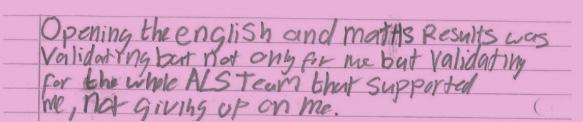 Opening the english and maths Results was
Validating but not only for me but Validating
for the whole ALS Team that supported
me, not giving up on me.